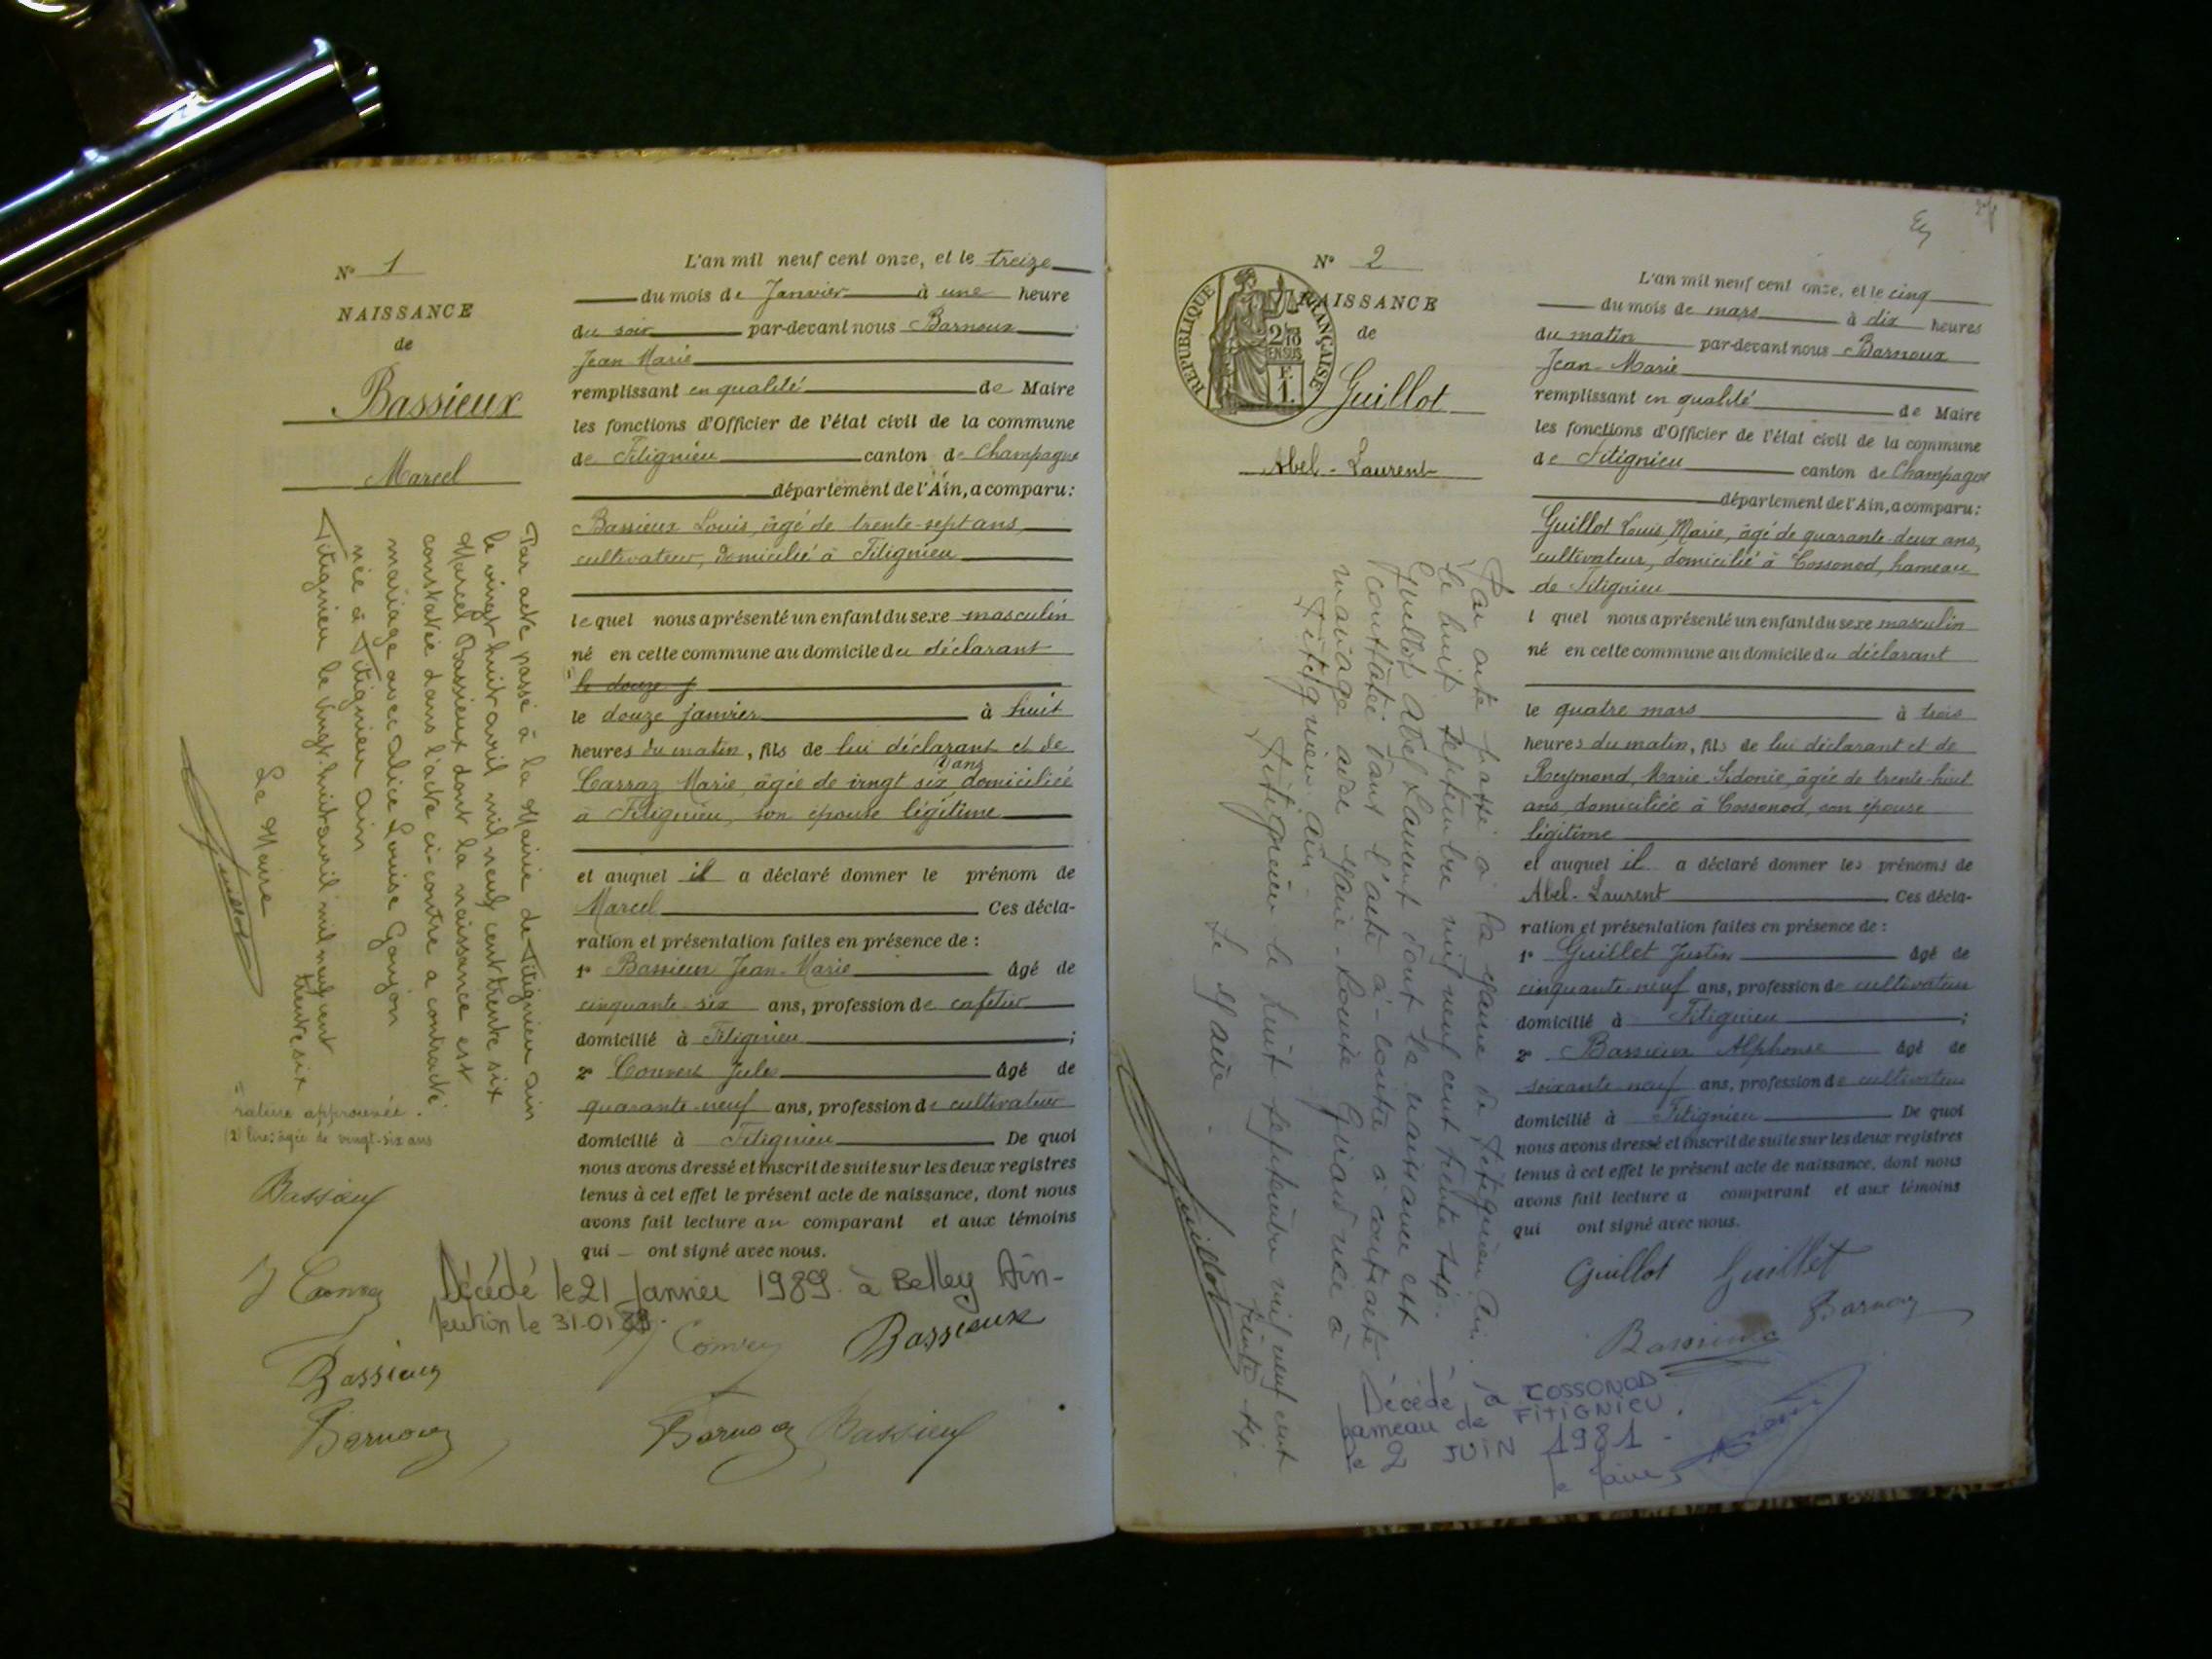 N° 1
NAISSANCE
de
Bassieux
Marcel
L'an mil neuf cent onze, et le treize
du mois de Janvier à une heure
du soir par-devant nous Barnoux
Jean Marie
remplissant en qualité de Maire
les fonctions d'Officier de l'état civil de la commune
de Fitignieu canton de Champagne
département de l'Ain, a comparu :
Bassieux Louis, âgé de trente-sept ans,
cultivateur, domicilié à Fitignieu
lequel nous a présenté un enfant du sexe masculin
né en cette commune au domicile du déclarant
le douze j
le douze janvier à huit
heures du matin, fils de lui déclarant et de
Carraz Marie, âgée de vingt six ans domiciliée
à Fitignieu, son épouse légitime
et auquel il a déclaré donner le prénom de
Marcel Ces décla-
ration et présentation faites en présence de :
1° Bassieux Jean-Marie âgé de
cinquante-six ans, profession de cafetier
domicilié à Fitignieu ;
2° Convert Jules âgé de
quarante-neuf ans, profession de cultivateur
domicilié à Fitignieu De quoi
nous avons dressé et inscrit de suite sur les deux registres
tenus à cet effet le présent acte de naissance, dont nous
avons fait lecture au comparant et aux témoins
qui ont signé avec nous.
Par acte passé à la Mairie de Fitignieu Ain
le vingt huit avril mil neuf cent trente six
Marcel Bassieux dont la naissance est
constatée dans l'acte ci-contre a contracté
mariage avec Alice Louise Goujon
née à Fitignieu Ain
Fitignieu le vingt-huit avril mil neuf cent
trente six
Le Maire
Guillot
rature approuvée.
(2) lire: âgée de vingt-six ans
Bassieux
J Convert
Décédé le 21 Janvier 1989 à Belley Ain-
le 31-01
Convert Bassieux
Bassieux
Barnoux
Barnoux Bassieux
N° 2
RÉPUBLIQUE FRANÇAISE
NAISSANCE
de
Guillot
Abel-Laurent
L'an mil neuf cent onze, et le cinq
du mois de mars à dix heures
du matin par-devant nous Barnoux
Jean-Marie
remplissant en qualité de Maire
les fonctions d'Officier de l'état civil de la commune
de Fitignieu canton de Champagne
département de l'Ain, a comparu :
Guillot Louis, Marie, âgé de quarante-deux ans,
cultivateur, domicilié à Cossonod, hameau
de Fitignieu
l quel nous a présenté un enfant du sexe masculin
né en cette commune au domicile du déclarant
le quatre mars à trois
heures du matin, fils de lui déclarant et de
Reymond, Marie-Sidonie, âgée de trente-huit
ans, domiciliée à Cossonod, son épouse
légitime
et auquel il a déclaré donner les prénoms de
Abel-Laurent Ces décla-
ration et présentation faites en présence de :
1° Guillet Justin âgé de
cinquante-neuf ans, profession de cultivateur
domicilié à Fitignieu ;
2° Bassieux Alphonse âgé de
soixante-neuf ans, profession de cultivateur
domicilié à Fitignieu De quoi
nous avons dressé et inscrit de suite sur les deux registres
tenus à cet effet le présent acte de naissance, dont nous
avons fait lecture a comparant et aux témoins
qui ont signé avec nous.
Par acte passé à la Mairie de Fitignieu Ain.
le huit septembre mil neuf cent trente sep.
Guillot Abel Laurent dont la naissance est
constatée dans l'acte ci-contre a contracté
mariage avec Marie-Louise née à
Fitignieu Ain
Fitignieu le huit septembre mil neuf cent
trente sep.
Le Maire.
Guillot
Guillot Guillet
Bassieux Barnoux
Décédé à COSSONOD
hameau de FITIGNIEU.
le 2 JUIN 1981.
le Maire,